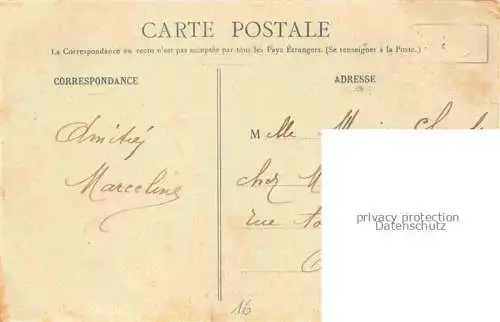 CARTE POSTALE
La Correspondance au recto n'est pas acceptée par tous les Pays Étrangers. (Se renseigner à la Poste.)
CORRESPONDANCE
ADRESSE
Amitiés
Marceline
M elle
chez M
rue
privacy protection
Datenschutz
16